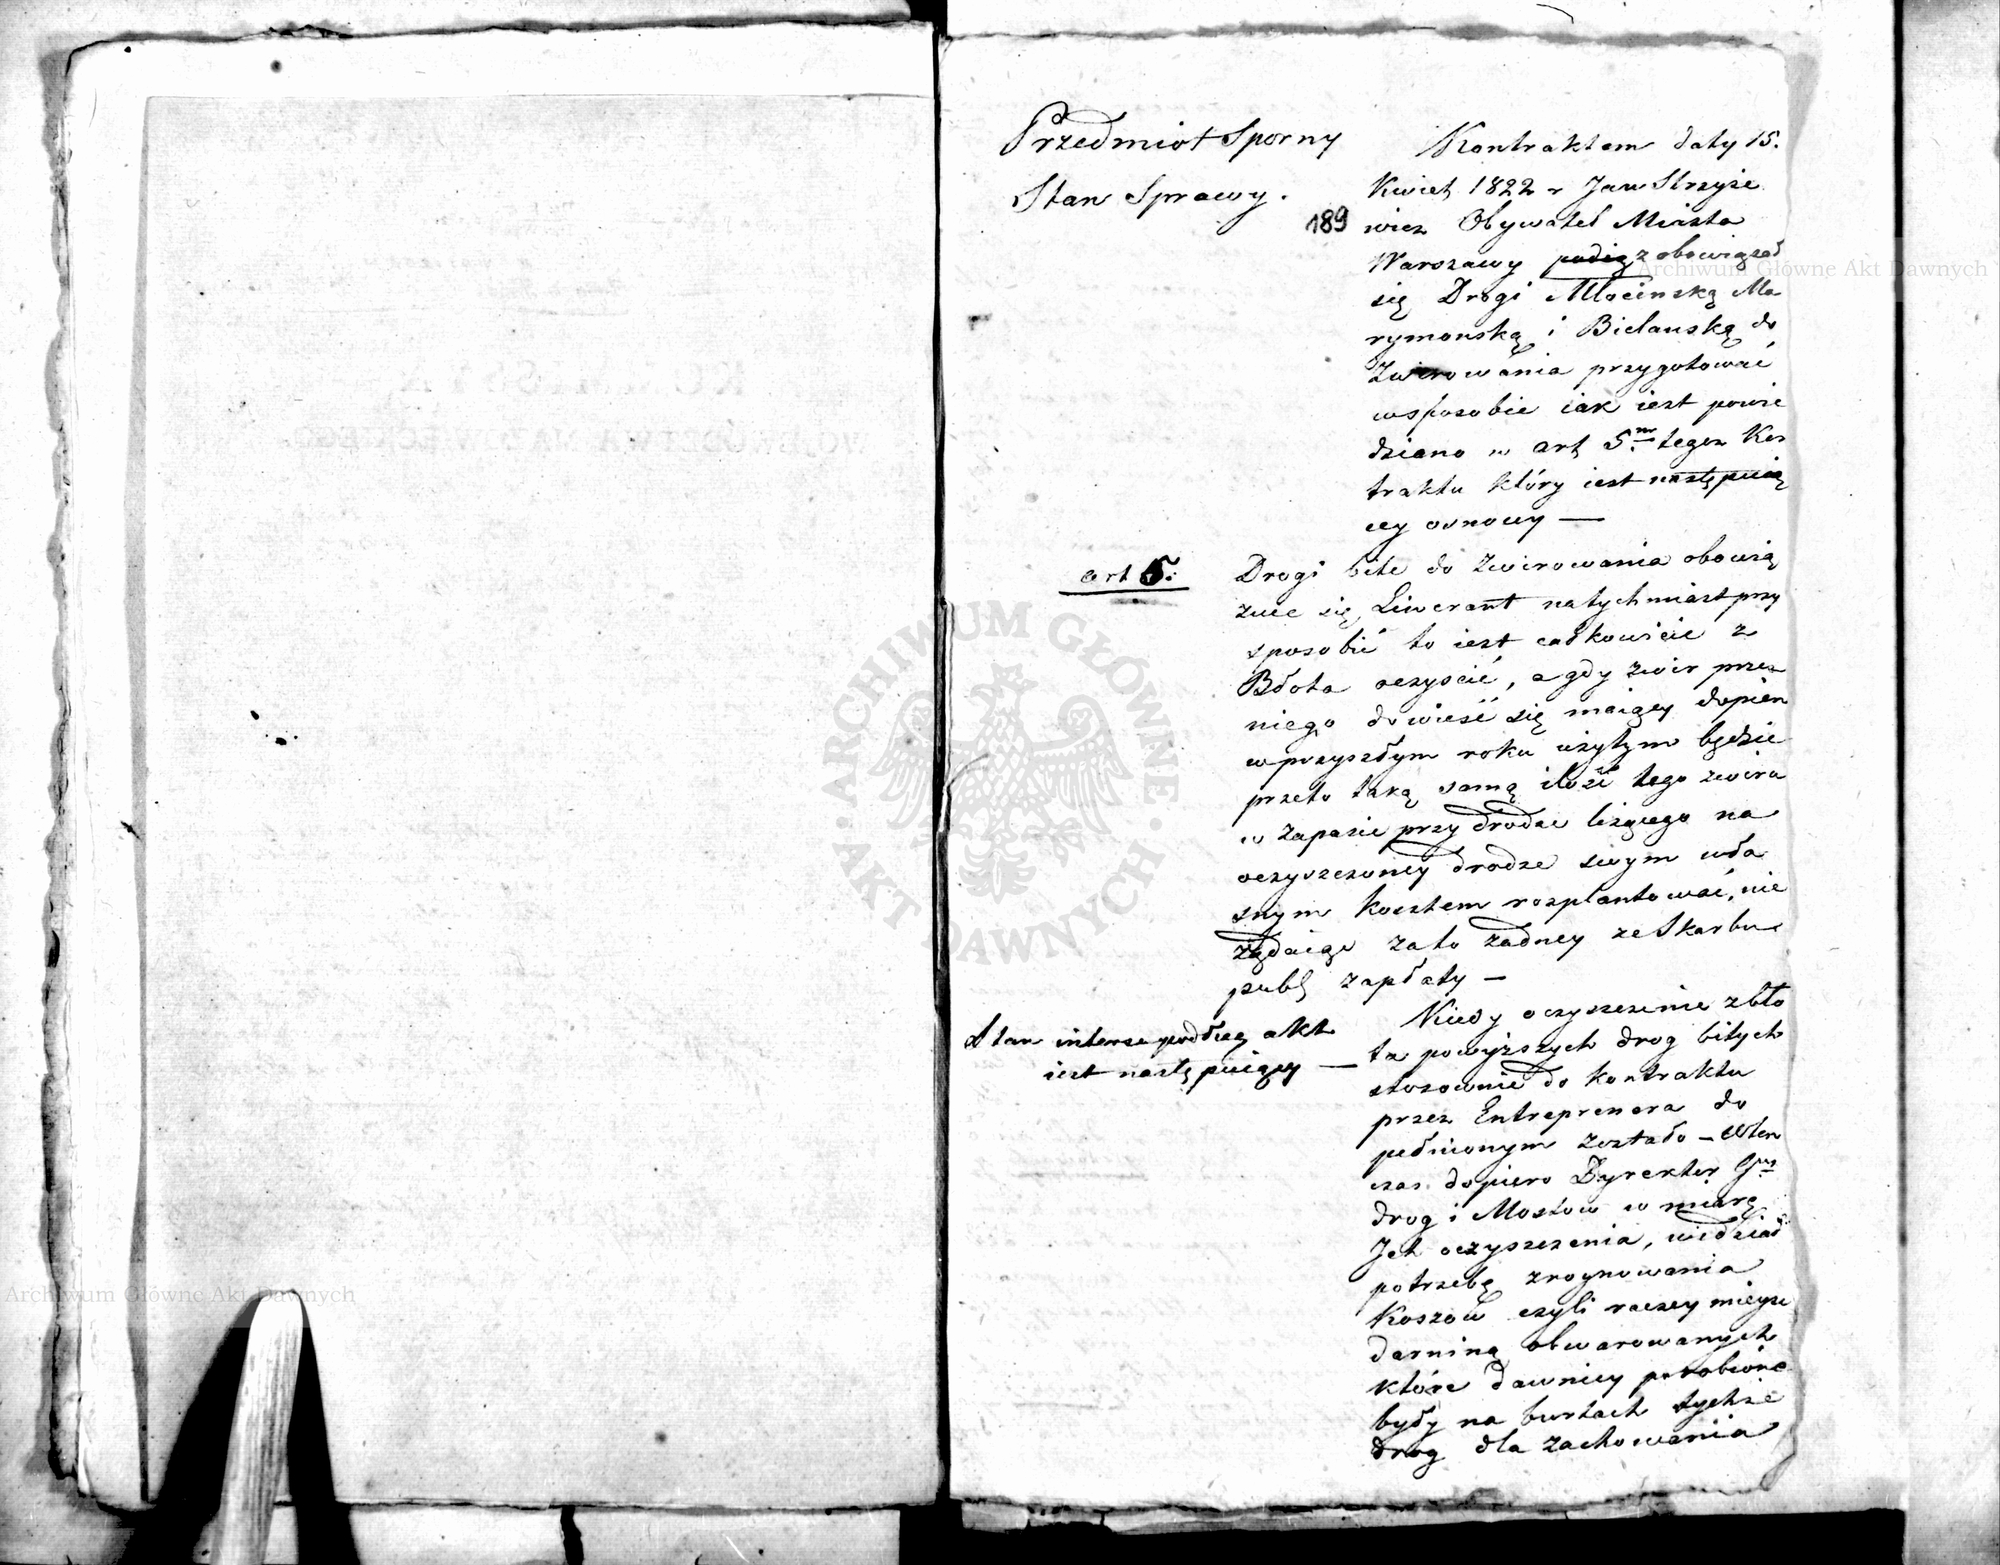 Przedmiot Sporny
Stan Sprawy.
189
Kontraktem daty 15.
Kwiet 1822 r Jan Strzyże
wicz Obywatel Miasta
Warszawy podią zobowiązał
się Drogi Młocińską Ma
rymonską i Bielanską do
Zwirowania przygotować
wsposobie iak iest powie
dziano w art 5. tegoż Kon
traktu który iest następuią
cey osnowy —
art 5.
Drogi bite do Zwirowania obowią
zuie się Liwerant natychmiast przy
sposobić to iest całkowicie z
Błota oczyścić, a gdy zwir przez
niego dowieść się maiący dopiero
wprzyszłym roku użytym będzie
przeto taką samą ilość tego zwiru
w zapasie przy drodze leżącego na
oczyszczoney drodze swym wła
snym kosztem rozplantować, nie
żądaiąc zato żadney ze Skarbu
publ zapłaty —
Stan interesu podług akt
iest następuiący —
Kiedy oczyszczenie zbło
ta powyższych drog bitych
stosownie do kontraktu
przez Entreprenera do
pełnionym zostało — wten
czas dopiero Dyrektor
drog i Mostow w miarę
Ich oczyszczenia, widział
potrzebę zroynowania
Koszow czyli raczey mieysc
darniną obwarowanych
które dawniey porobione
były na burtach tychże
drog dla zachowania
Archiwum Główne Akt Dawnych
ARCHIWUM GŁÓWNE
· AKT DAWNYCH ·
Archiwum Główne Akt Dawnych